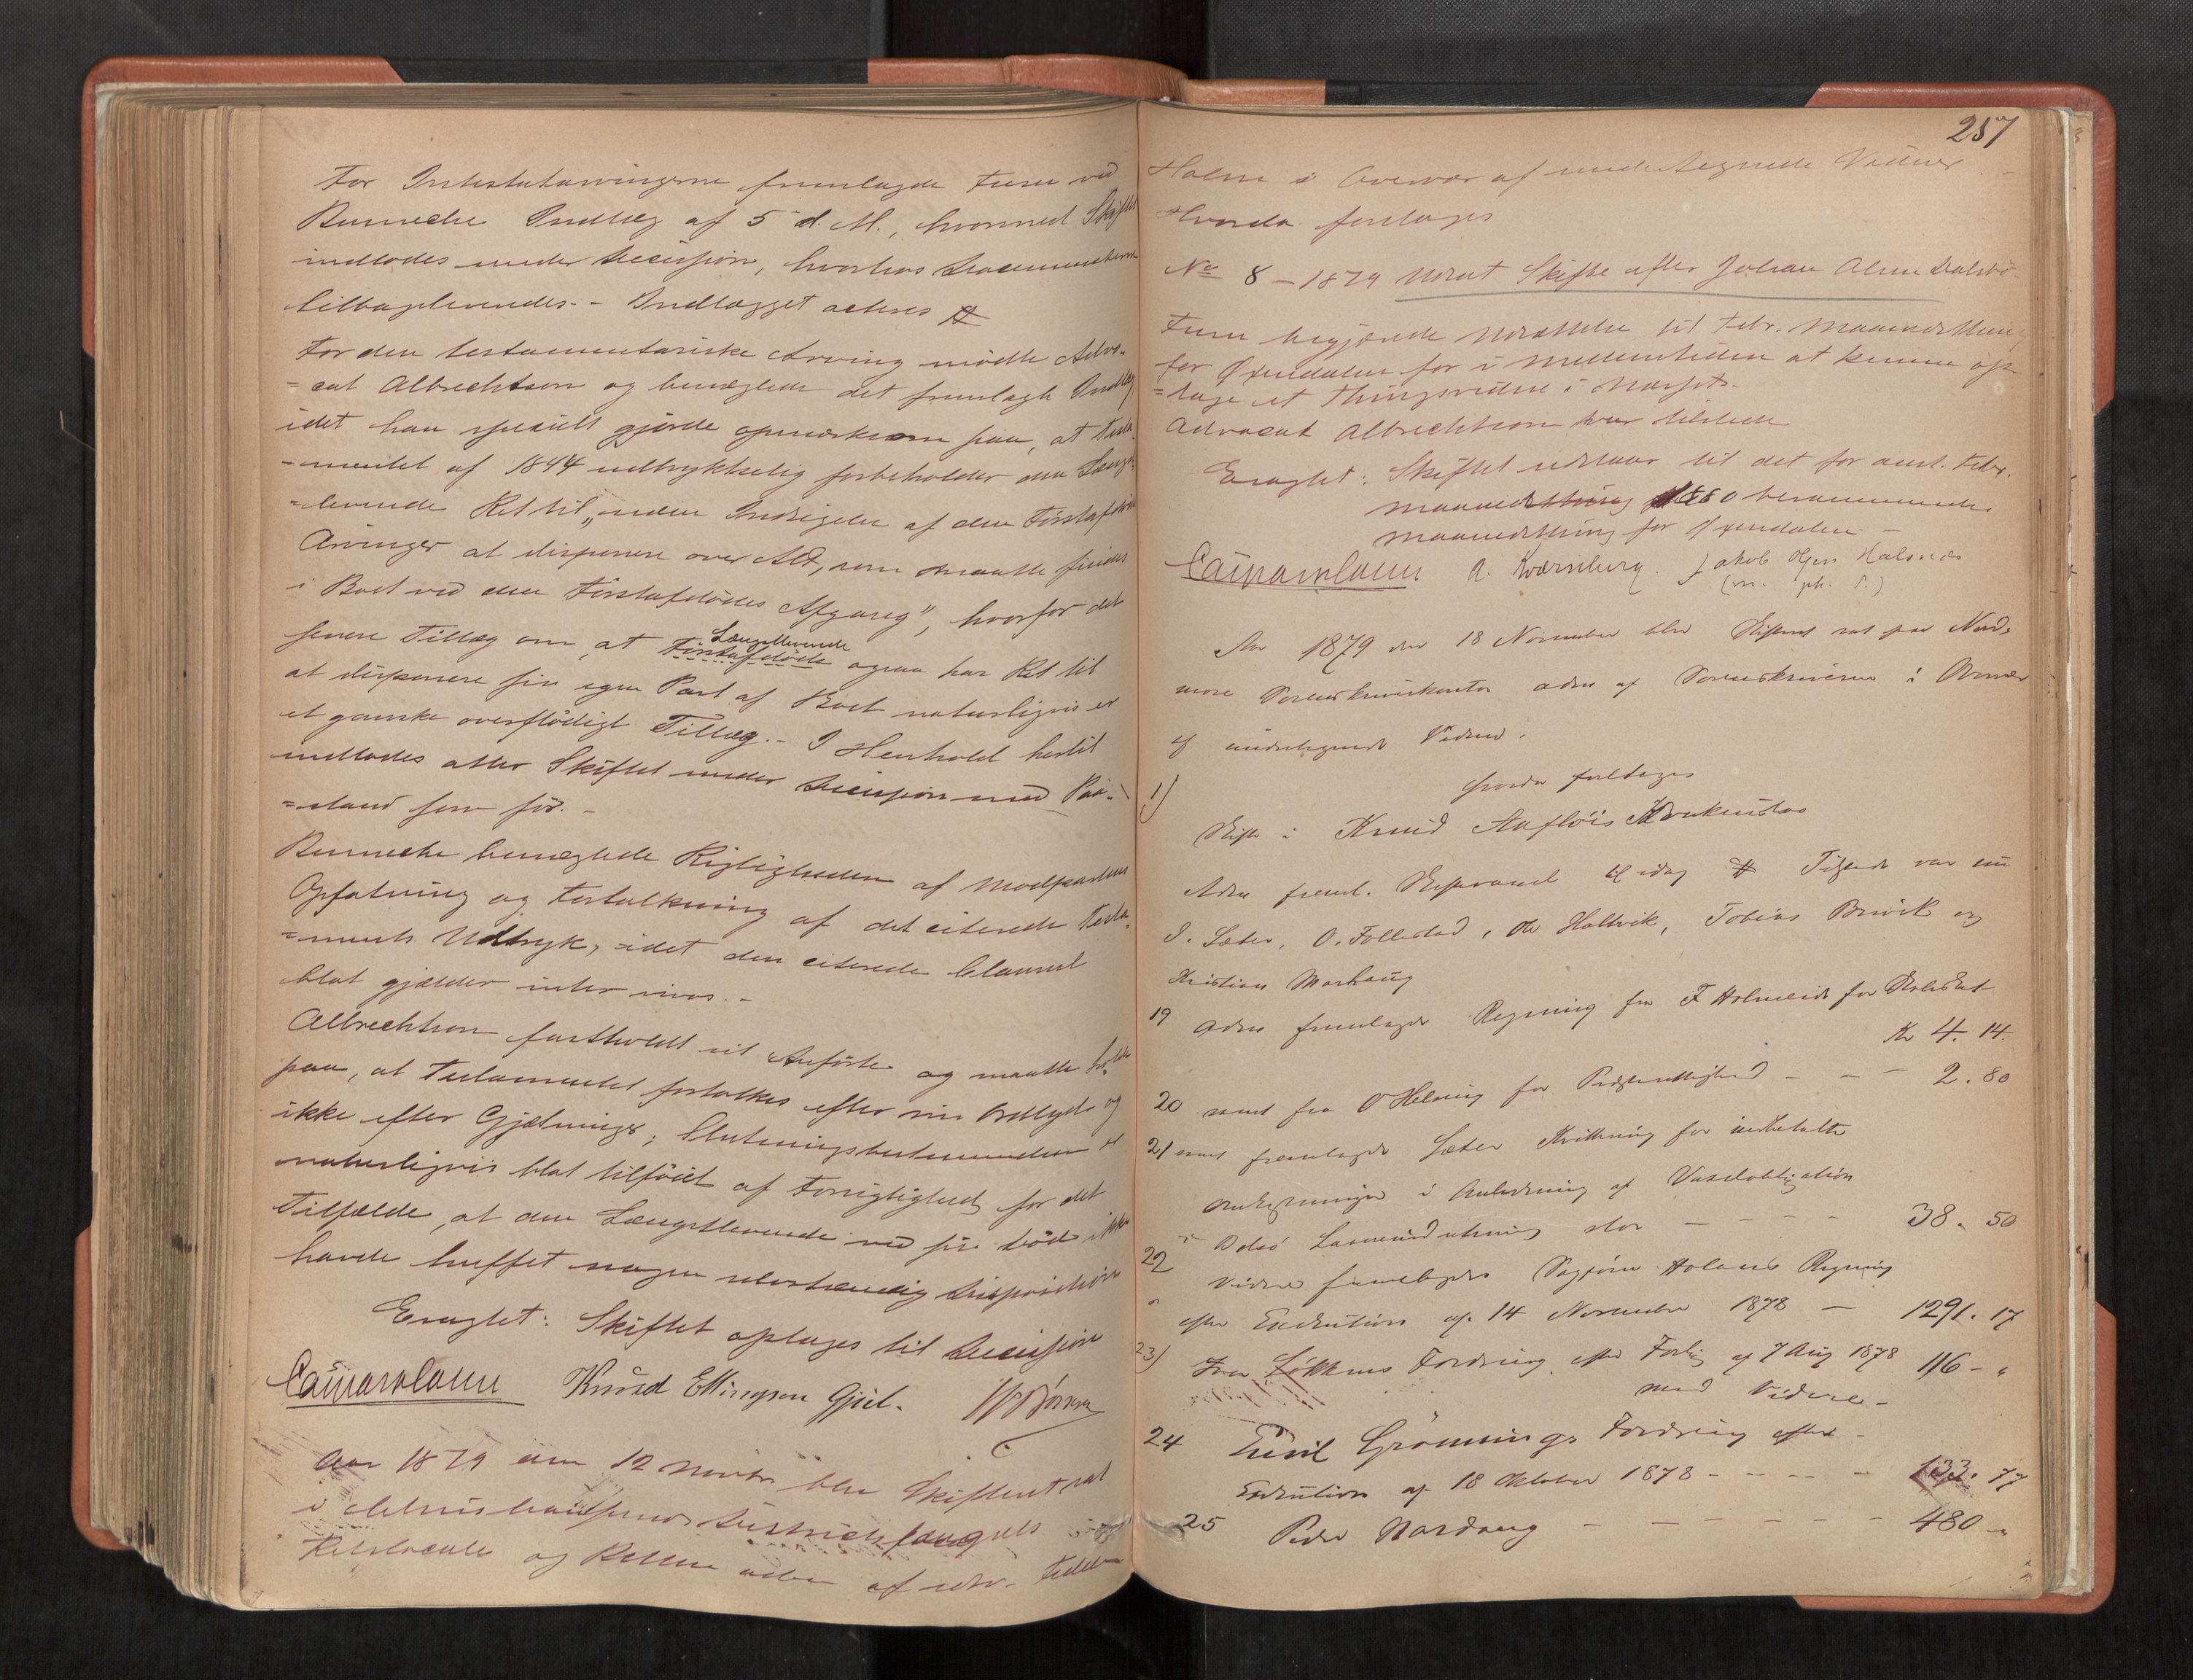 For Intestatarvingerne fremlagde Furu ved
Benneche Indlæg af 5 d. M., hvormed Skiftet
indlodes under Decision, hvorhos Documenterne
tilbageleveredes. - Indlægget acteres #
For den testamentariske Arving mødte Advo-
=cat Albrechtson og benægtede det fremlagte Indlæg
idet han specielt gjorde opmærksom paa, at Testa-
=mentet af 1844 udtrykkelig forbeholder den Længst-
=levende Ret til „uden Indsigelse af den Førstafdødes
Arvinger at disponere over Alt, som maatte findes
i Boet ved den Førstafdødes Afgang", hvorfor det
senere Tillæg om, at Førstafdøde Længstlevende ogsaa har Ret til
at disponere sin egen Part af Boet naturligvis er
et ganske overflødigt Tillæg. - I Henhold hertil
indlodes atter Skiftet under Decision med Paa-
=stand som før. -
Benneche benægtede Rigtigheden af Modpartens
Opfatning og Fortolkning af det citerede Testa-
=ments Udtryk, idet den citerede Clausul
blot gjælder inter vivos. -
Albrechtson fastholdt sit Anførte og maatte holde
paa, at Testamentet fortolkes efter sin Ordlyd og
ikke efter Gjætninger; Slutningsbestemmelsen er
naturligvis blot tilføiet af Forsigtighed for det
Tilfælde, at den Længstlevende ved sin Død ikke
havde truffet nogen selvstændig Disposition
Eragtet: Skiftet optages til Decision
Knud Ellingsen Gjül.
Aar 1879 den 12 Novbr blev Skifteret sat
i Christianssunds Distriktsfængsels
Retslocale og Retten adm. af edsv. Fuldm.
257
Holm i Overvær af undertegnede Vidner.
Hvorda foretoges
No 8 - 1879 Udsat Skifte efter Johan Olsen Dalsbø
Furu begjærede Udsættelse til Febr. Maanedsthing
for Øxendalen for i Mellemtiden at kunne op-
=tage et Thingsvidne i
Advocat Albrechtson var tilstede
Eragtet: Skiftet udstaar til det for anst. Febr.
Maanedsthing 1880 berammende
Maanedsthing for Øxendalen -
A. Kvernberg. Jakob Olsen Halsnes
(m. p. P.)
Aar 1879 den 18 November blev Skifteret sat paa Nord-
møre Sorenskriverkontor adm af Sorenskriveren i Overvær
af undertegnede Vidner.
hvorda foretoges
1)
Skifte i Knud Aufløis
Adm freml. Skiftevarsel til idag # Tilstede var nu
I. Sæter, O. Follestad, Ole Hallvik, Tobias Brevik og
Kristian Morhaug
19 Adm fremlagde Regning fra F Holmeide for Skoleskat
Kr 4. 14.
20 samt fra O Helsing for Præsterettighed - - - 2. 80
21 samt fremlagde Sæter Kvittering for indbetalte
Omkostninger i Anledning af Vaseobligation
i Laaneindretning stor - - - - 38. 50
22 Videre fremlagdes Regning
efter Exekution af 14 November 1878 - 1291. 17
23) Iver Løkkens Fordring efter Forlig af 7 Aug 1878 116 - "
med Videre -
24 Emil Grønnings Fordring efter -
Exekution af 18 Oktober 1878 - - - - - 133. 77
25 Peder Nordvang - - - - - - 480 - "